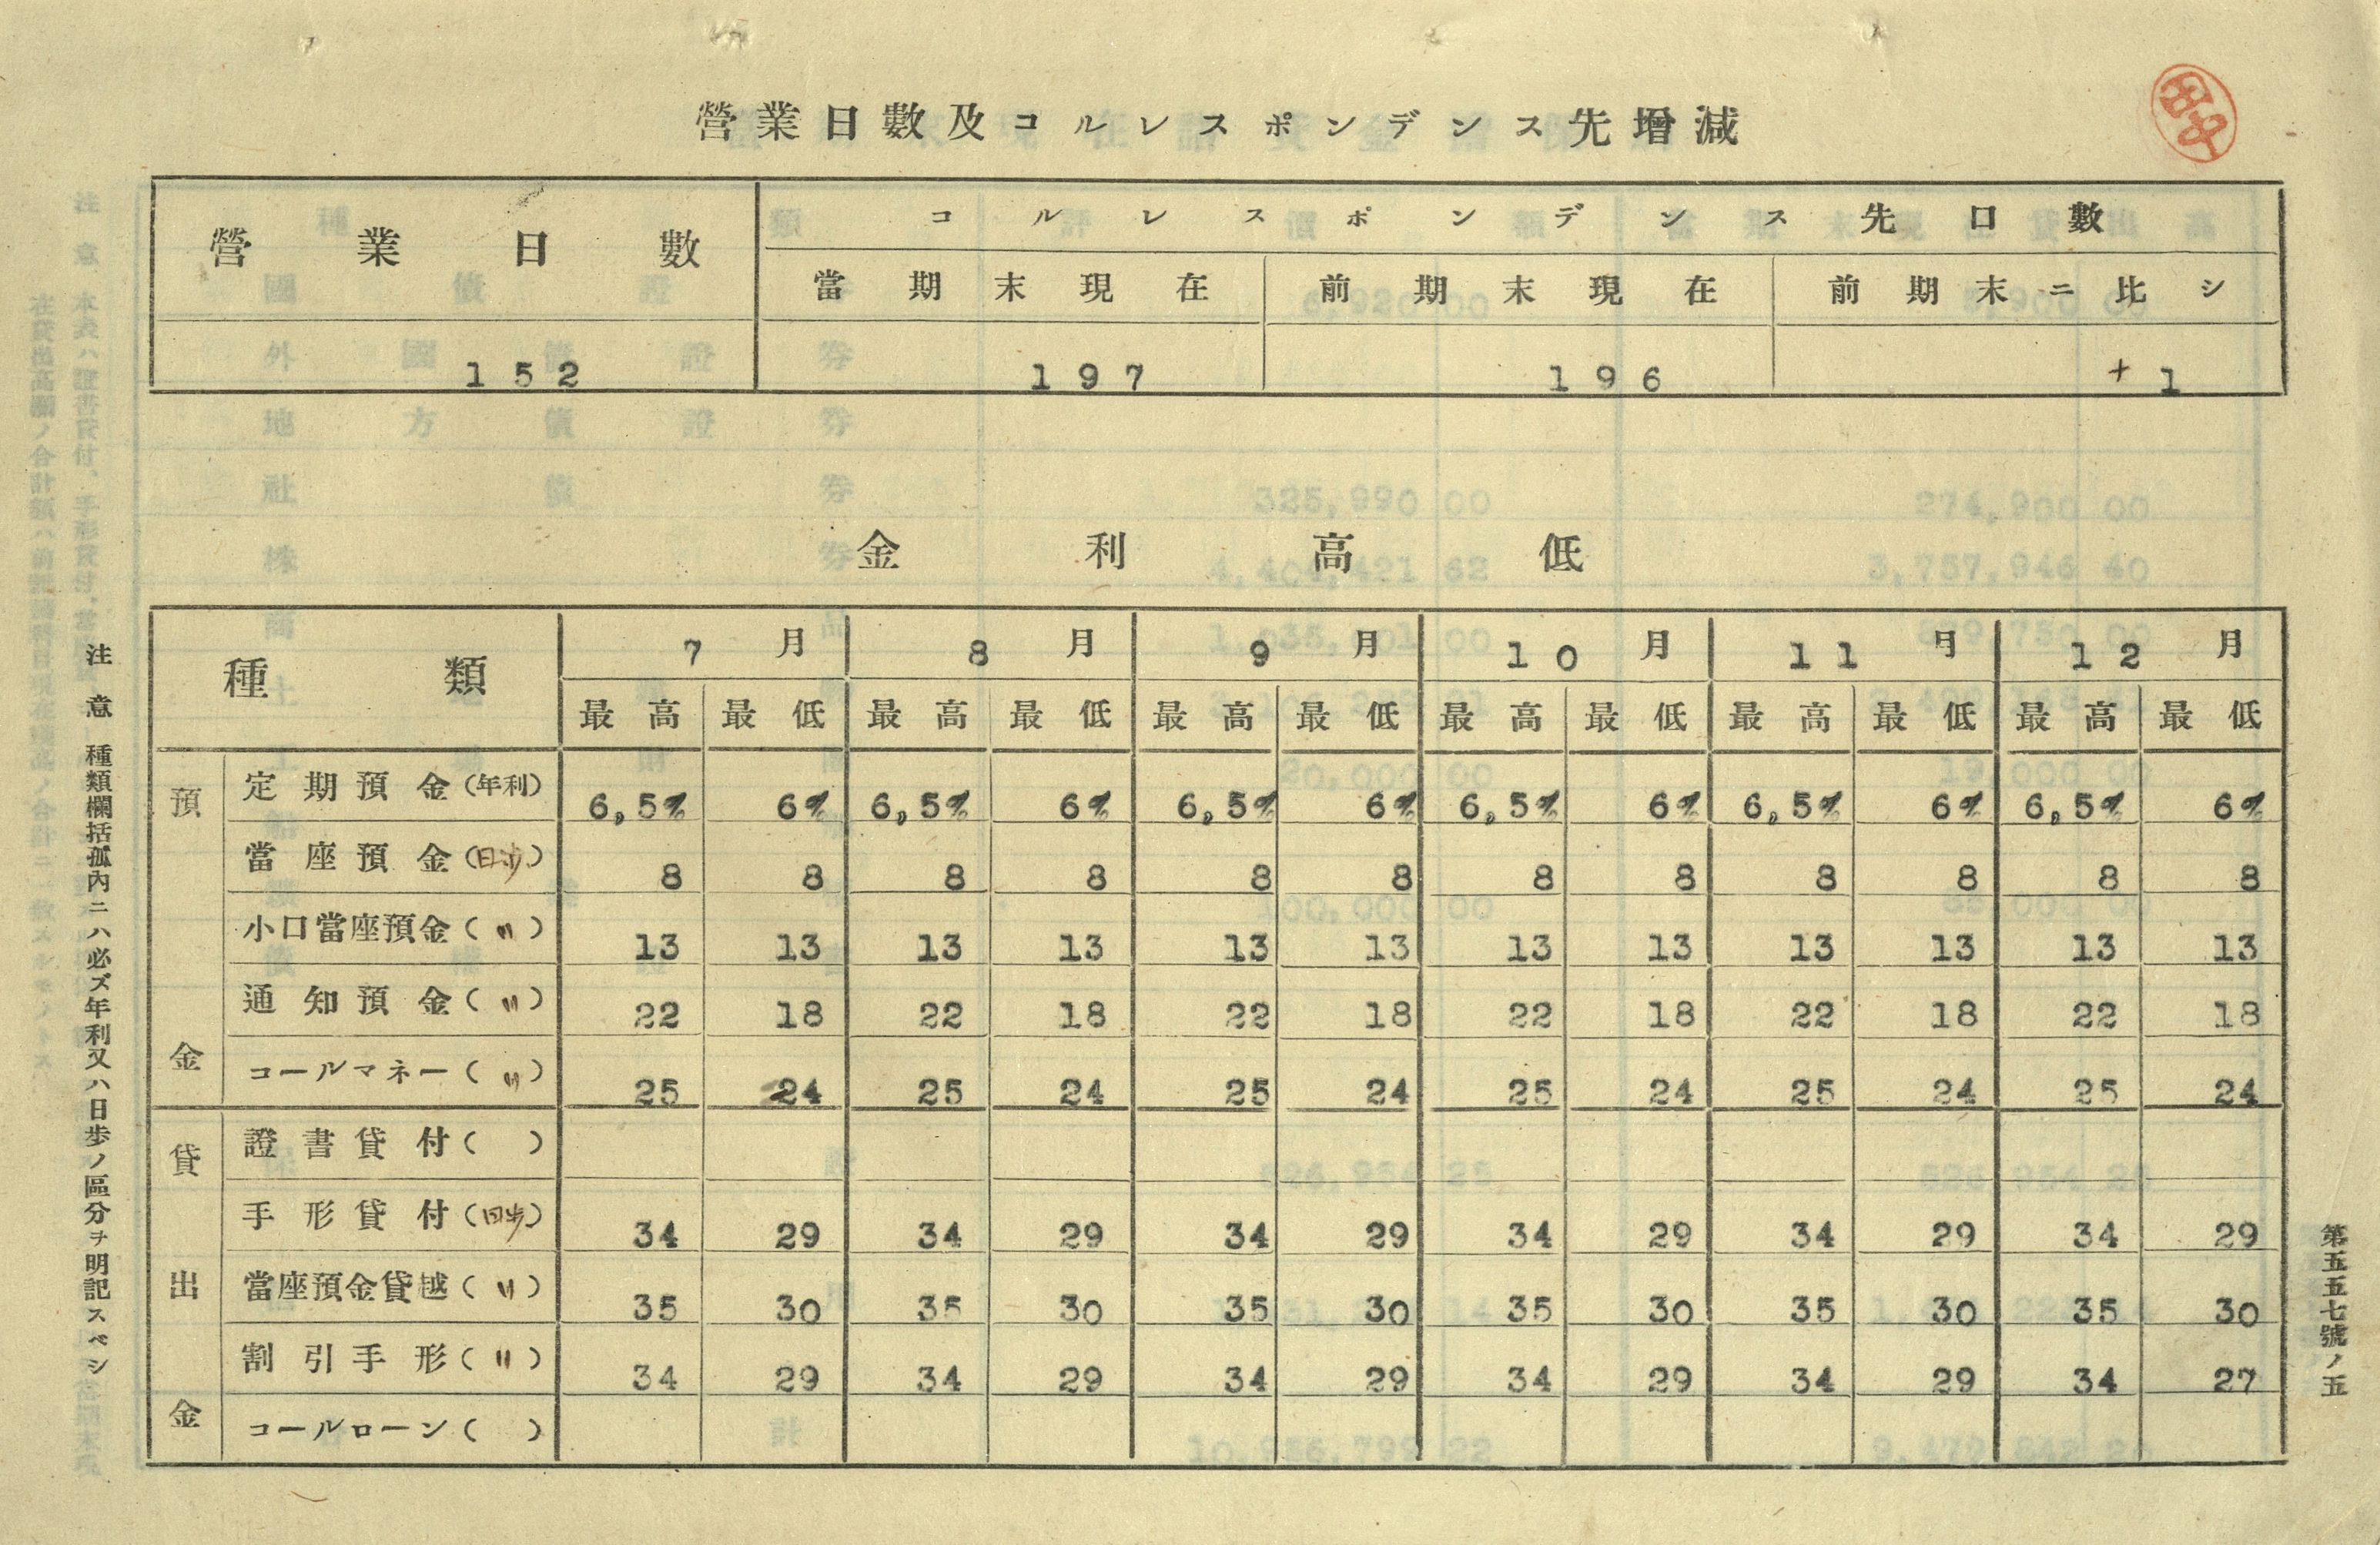 營業日數及コルレスポンデンス先增減
營業日數 コルレスポンデンス先口數
當期末現在 前期末現在 前期末ニ比シ
152 197 196 +1
金利高低
種類 7月 8月 9月 10月 11月 12月
最高 最低 最高 最低 最高 最低 最高 最低 最高 最低 最高 最低
預金
定期預金(年利) 6,5% 6% 6,5% 6% 6,5% 6% 6,5% 6% 6,5% 6% 6,5% 6%
當座預金(日歩) 8 8 8 8 8 8 8 8 8 8 8 8
小口當座預金(〃) 13 13 13 13 13 13 13 13 13 13 13 13
通知預金(〃) 22 18 22 18 22 18 22 18 22 18 22 18
コールマネー(〃) 25 24 25 24 25 24 25 24 25 24 25 24
貸出金
證書貸付( )
手形貸付(日歩) 34 29 34 29 34 29 34 29 34 29 34 29
當座預金貸越(〃) 35 30 35 30 35 30 35 30 35 30 35 30
割引手形(〃) 34 29 34 29 34 29 34 29 34 29 34 27
コールローン( )
注意 種類欄括孤內ニハ必ズ年利又ハ日歩ノ區分ヲ明記スベシ
第五五七號ノ五